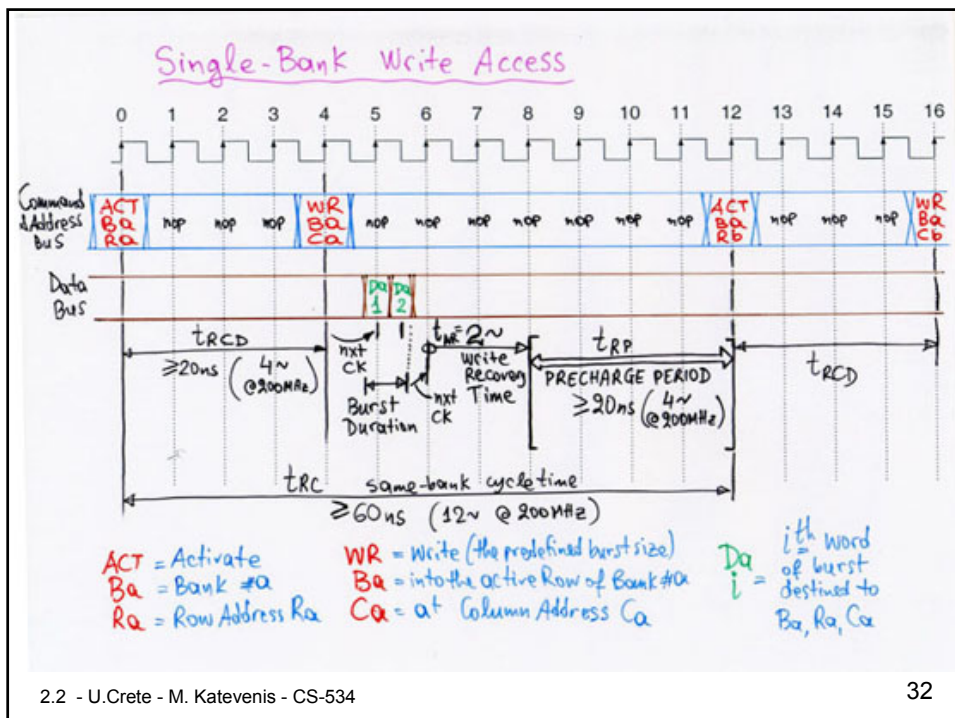 Single-Bank Write Access
0 1 2 3 4 5 6 7 8 9 10 11 12 13 14 15 16
Command
&Address
Bus
ACT
Ba
Ra
nop nop nop
WR
Ba
Ca
nop nop nop nop nop nop nop
ACT
Ba
Rb
nop nop nop
WR
Ba
Cb
Data
Bus
Da
1
Da
2
tRCD
≥20ns (4~
@200MHz)
nxt
CK
Burst
Duration
nxt
CK
=2~
Write
Recovery
Time
tRP
PRECHARGE PERIOD
≥20ns (4~
@200MHz)
tRCD
tRC same-bank cycle time
≥60ns (12~ @ 200MHz)
ACT = Activate
Ba = Bank #a
Ra = Row Address Ra
WR = Write (the predefined burst size)
Ba = into the active Row of Bank #a
Ca = at Column Address Ca
Da
i = ith word
of burst
destined to
Ba, Ra, Ca
2.2 - U.Crete - M. Katevenis - CS-534
32